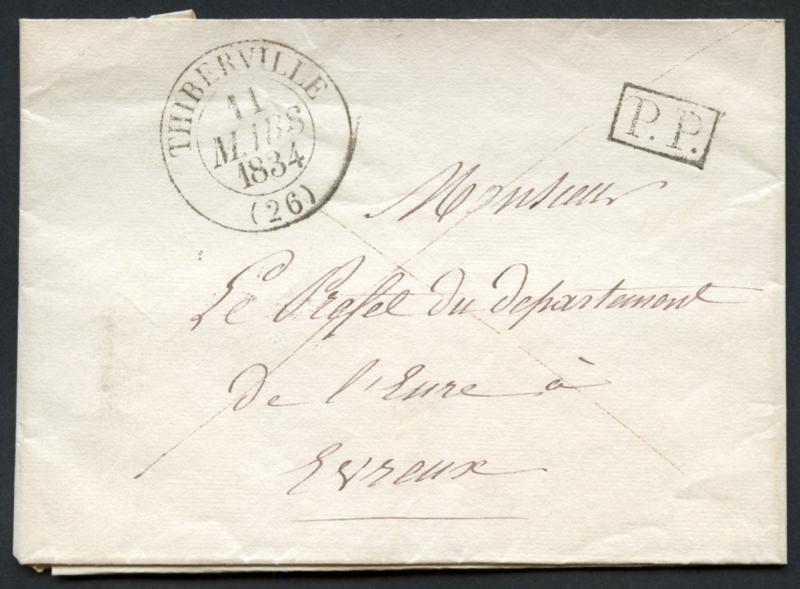 THIBERVILLE
11
MARS
1834
(26)
P.P.
Monsieur
Le Prefet du departement
de l'Eure à
Evreux